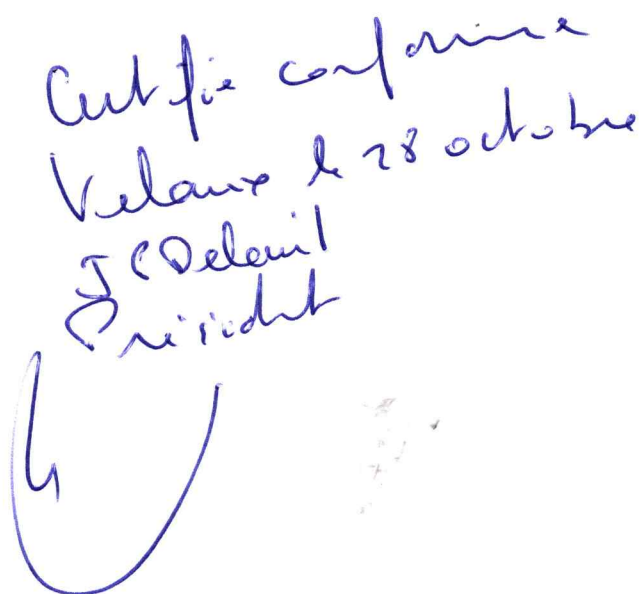 Certifié conforme
Velaux le 28 octobre
JC Delauil
Président